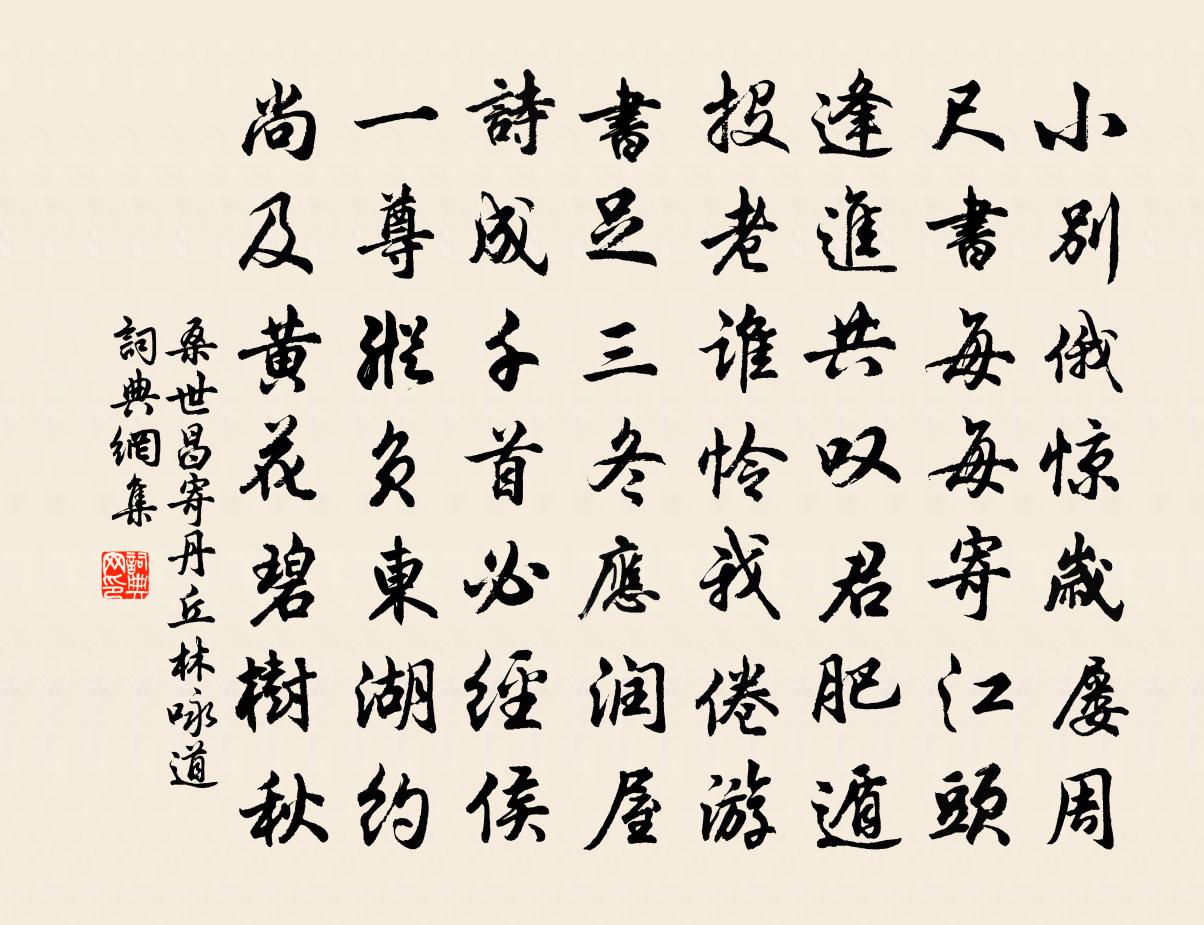 小別俄惊歲屡周
尺書每每寄江頭
逢進共叹君肥遁
投老谁怜我倦游
書足三冬應润屋
詩成千首必經侯
一尊縱负東湖約
尚及黃花碧樹秋
桑世昌寄丹丘林咏道
詞典網集
詞典网印